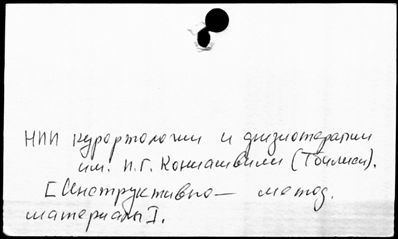 НИИ курортологии и физиотерапии
им. И.Г. Кониашвили (Тбилиси).
[Инструктивно — метод.
материалы].